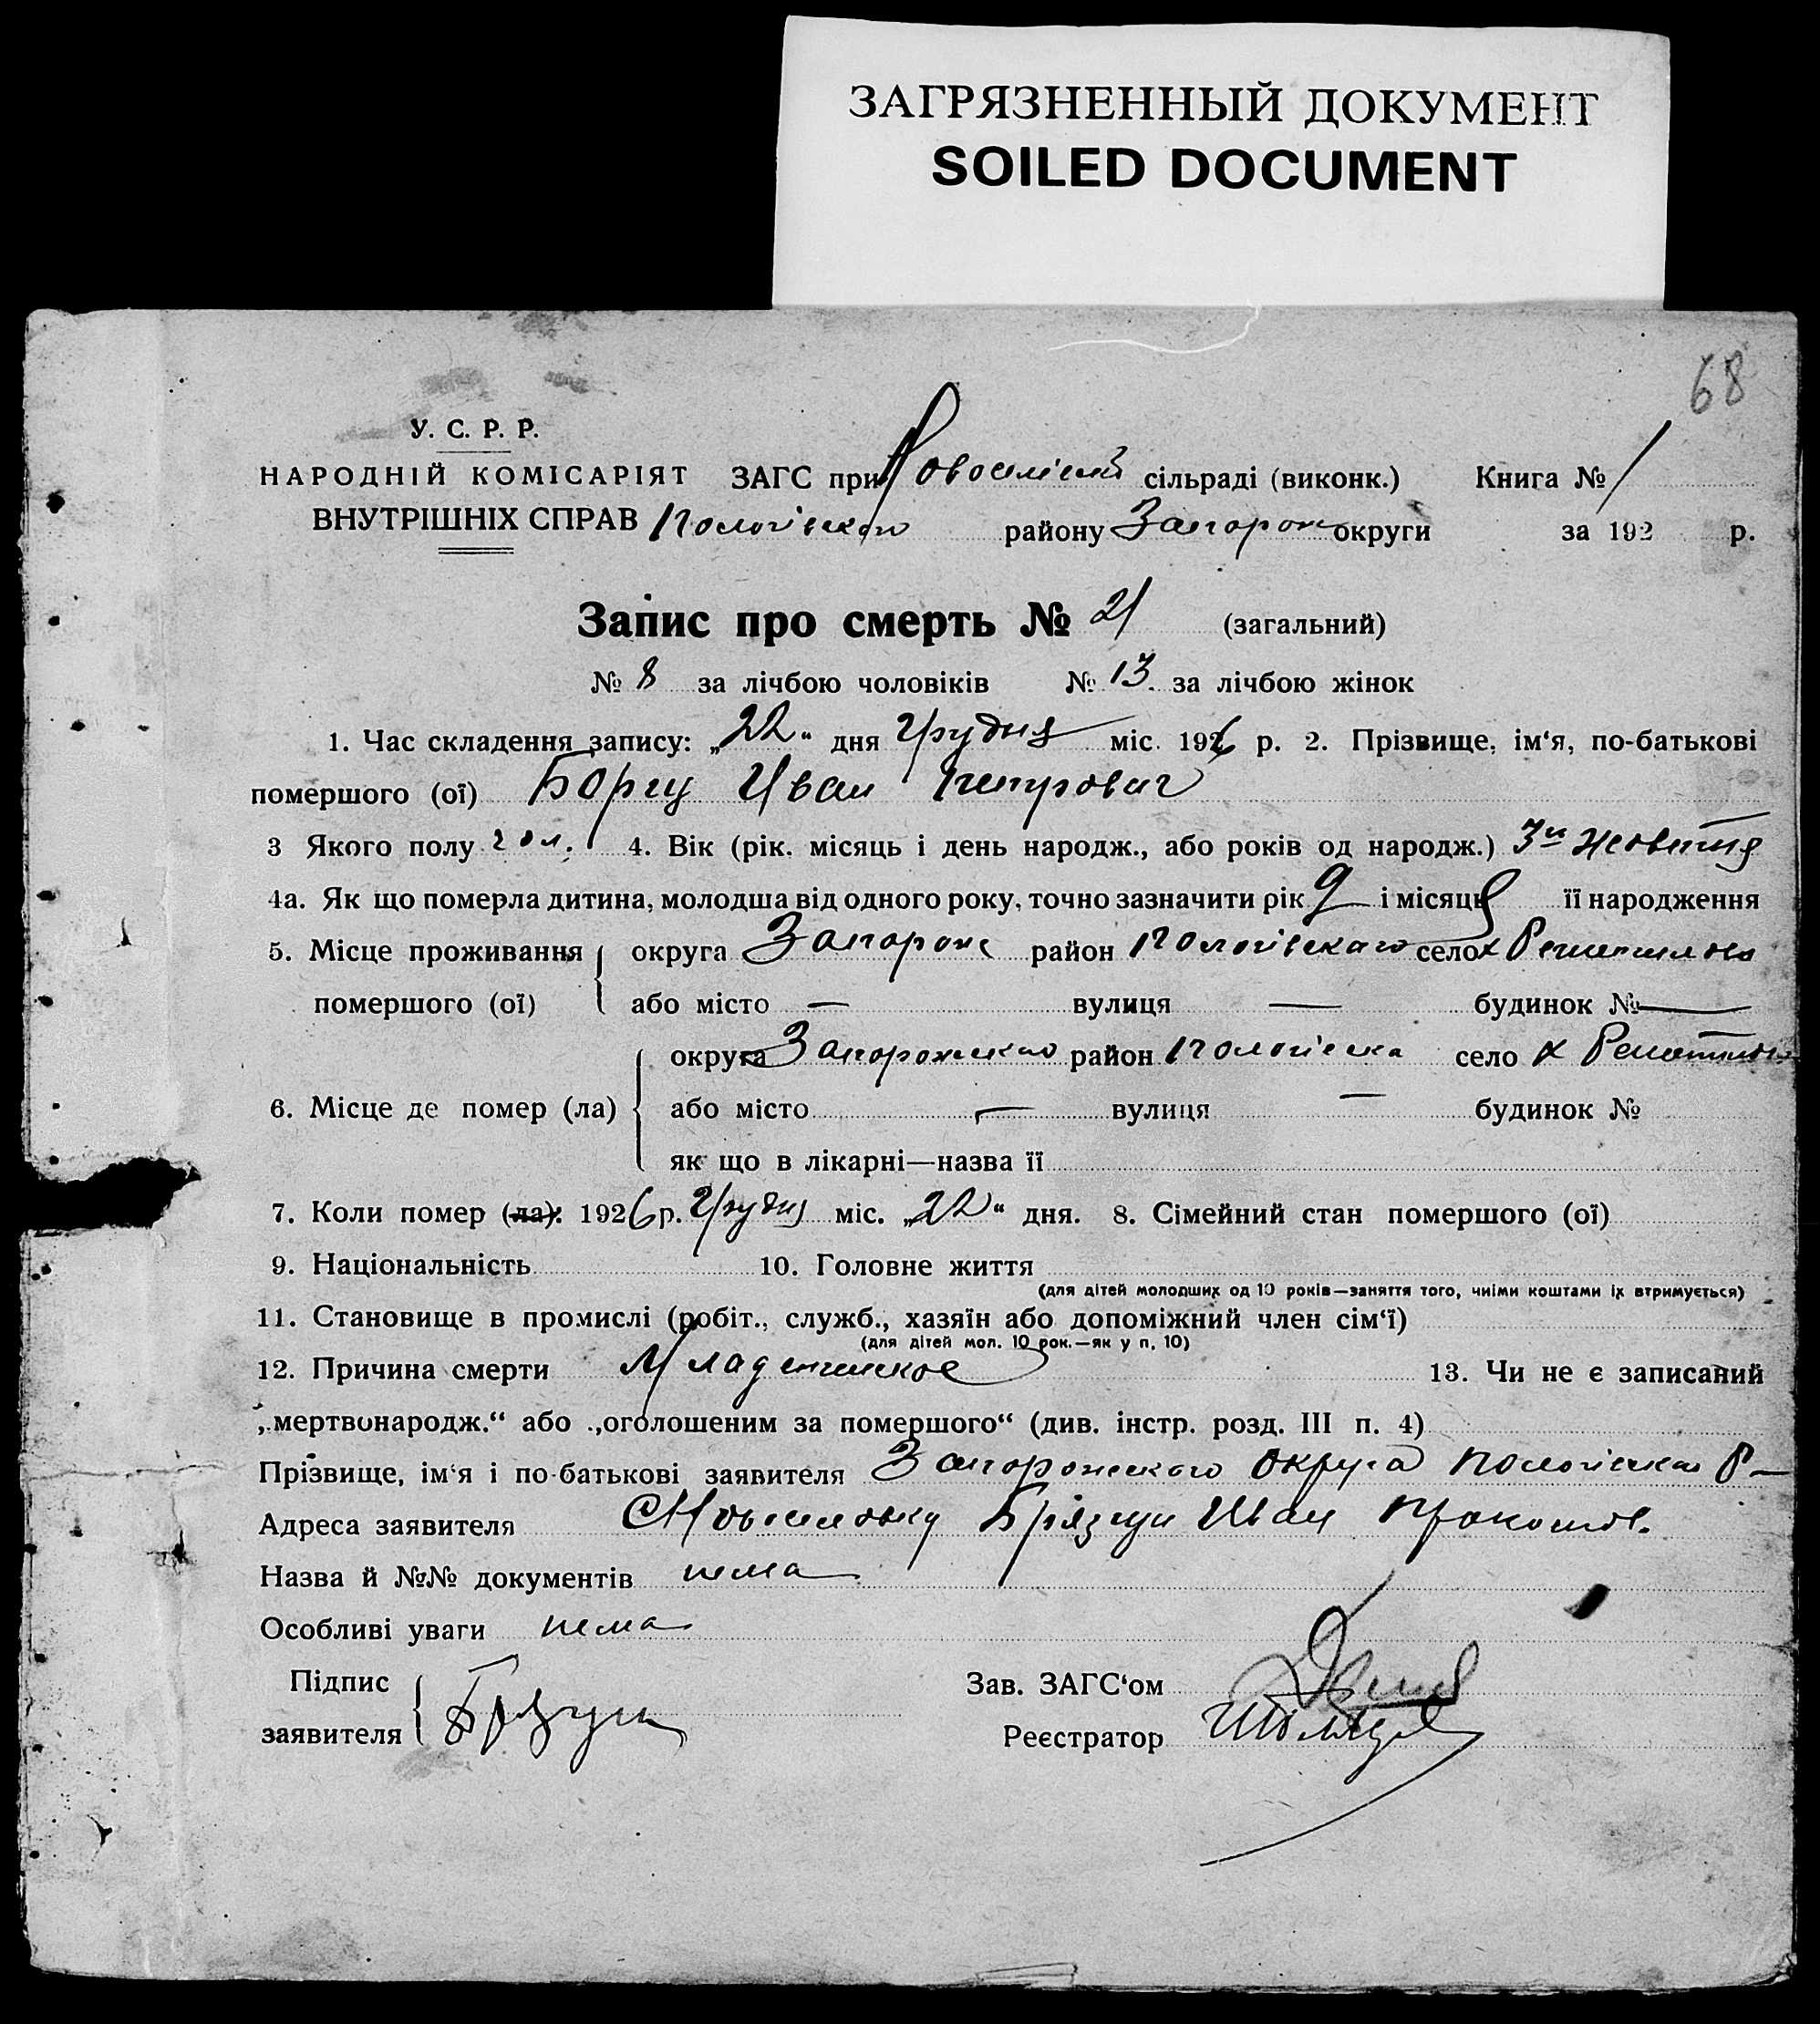 ЗАГРЯЗНЕННЫЙ ДОКУМЕНТ
SOILED DOCUMENT
68
У. С. Р. Р.
НАРОДНІЙ КОМІСАРІЯТ ЗАГС при сільраді (виконк.) Книга № 1
ВНУТРІШНІХ СПРАВ району Запорож округи за 192 р.
Запис про смерть № 21 (загальний)
№ 8 за лічбою чоловіків № 13. за лічбою жінок
1. Час складення запису: „22“ дня Грудня міс. 1926 р. 2. Прізвище, ім‘я, по-батькові
помершого (ої) Иван Петрович
3 Якого полу чол. 4. Вік (рік. місяць і день народж., або років од народж.) Жовтня
4а. Як що померла дитина, молодша від одного року, точно зазначити рік і місяць її народження
5. Місце проживання округа Запорож район Пологівскаго село х
помершого (ої) або місто — вулиця — будинок № —
округа Запорожскаго район село х
6. Місце де помер (ла) або місто — вулиця — будинок №
як що в лікарні—назва її
7. Коли помер (ла): 1926 р. Грудня міс. „22“ дня. 8. Сімейний стан помершого (ої)
9. Національність 10. Головне життя
(для дітей молодших од 10 років—заняття того, чиїми коштами їх втримується)
11. Становище в промислі (робіт., служб., хазяїн або допоміжний член сім‘ї)
(для дітей мол. 10 рок.—як у п. 10)
12. Причина смерти Младенческое 13. Чи не є записаний
„мертвонародж.“ або „оголошеним за помершого“ (див. інстр. розд. III п. 4)
Прізвище, ім‘я і по-батькові заявителя Запорожского Округа Р—
Адреса заявителя Иван
Назва й №№ документів нема
Особливі уваги нема
Підпис
заявителя
Зав. ЗАГС‘ом
Реєстратор